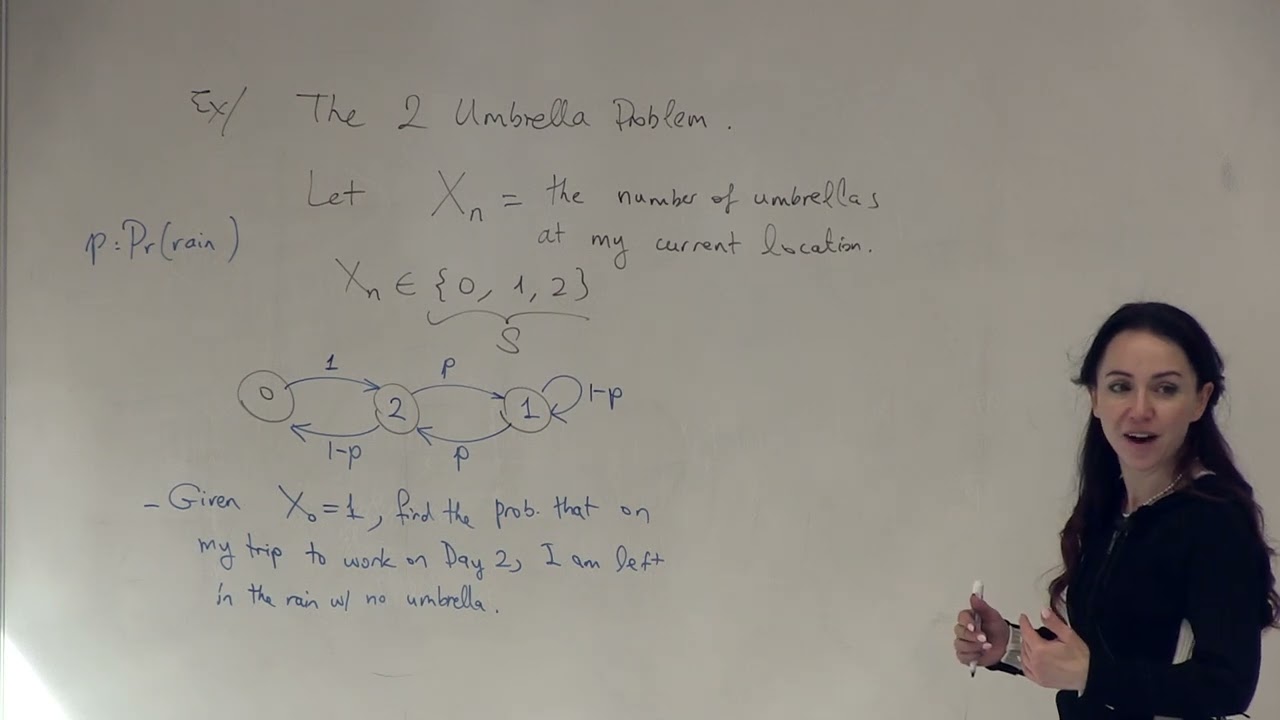 Ex/ The 2 Umbrella Problem.
Let Xn = the number of umbrellas
at my current location.
p: Pr(rain)
Xn ∈ {0, 1, 2}
S
1 p
0 2 1 1-p
1-p p
- Given X₀=1, find the prob. that on
my trip to work on Day 2, I am left
in the rain w/ no umbrella.